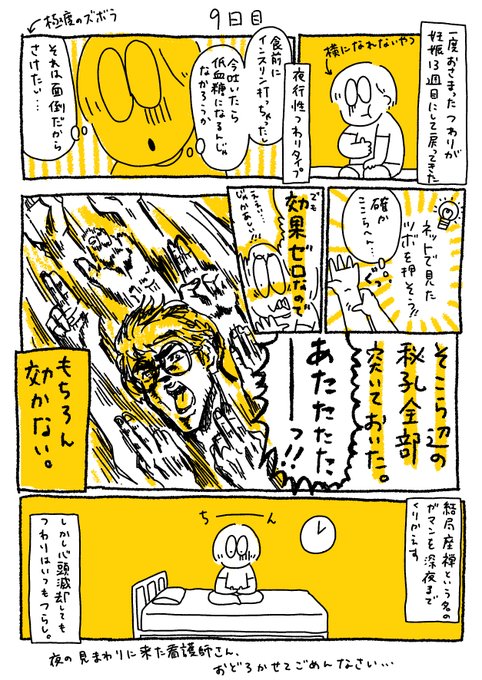 9日目
一度おさまったつわりが
妊娠13週目にして戻ってきた
横になれないやつ
夜行性つわりタイプ
食前に
インスリン打っちゃったし
今吐いたら
低血糖になるんじゃ
なかろうか
それは面倒だから
さけたい…
極度のズボラ
ネットで見た
ツボを押そう!!
確か
ここらへん…
ぐっ
でも
効果ゼロなので
そこら辺の
秘孔全部
突いておいた。
あたたたた、
ーーっ!!
もちろん
効かない。
結局座禅という名の
ガマンを深夜まで
くりかえす
ちーーん
しかし心頭滅却しても
つわりはいつもつらし。
夜の見まわりに来た看護師さん、
おどろかせてごめんなさい…